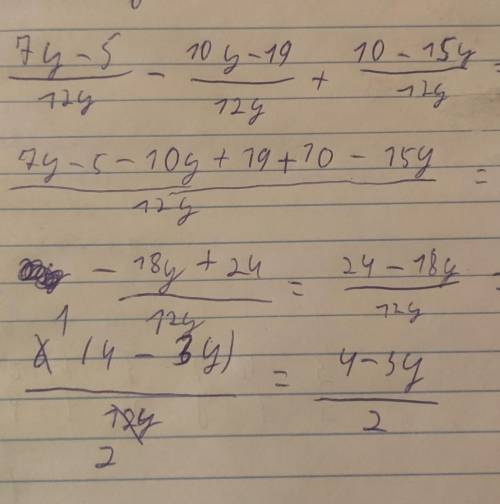 (7y - 5)/12y - (10y - 19)/12y + (10 - 15y)/12y =
(7y - 5 - 10y + 19 + 10 - 15y)/12y =
(- 18y + 24)/12y = (24 - 18y)/12y =
1
6 (4 - 3y)/12y = (4 - 3y)/2
2